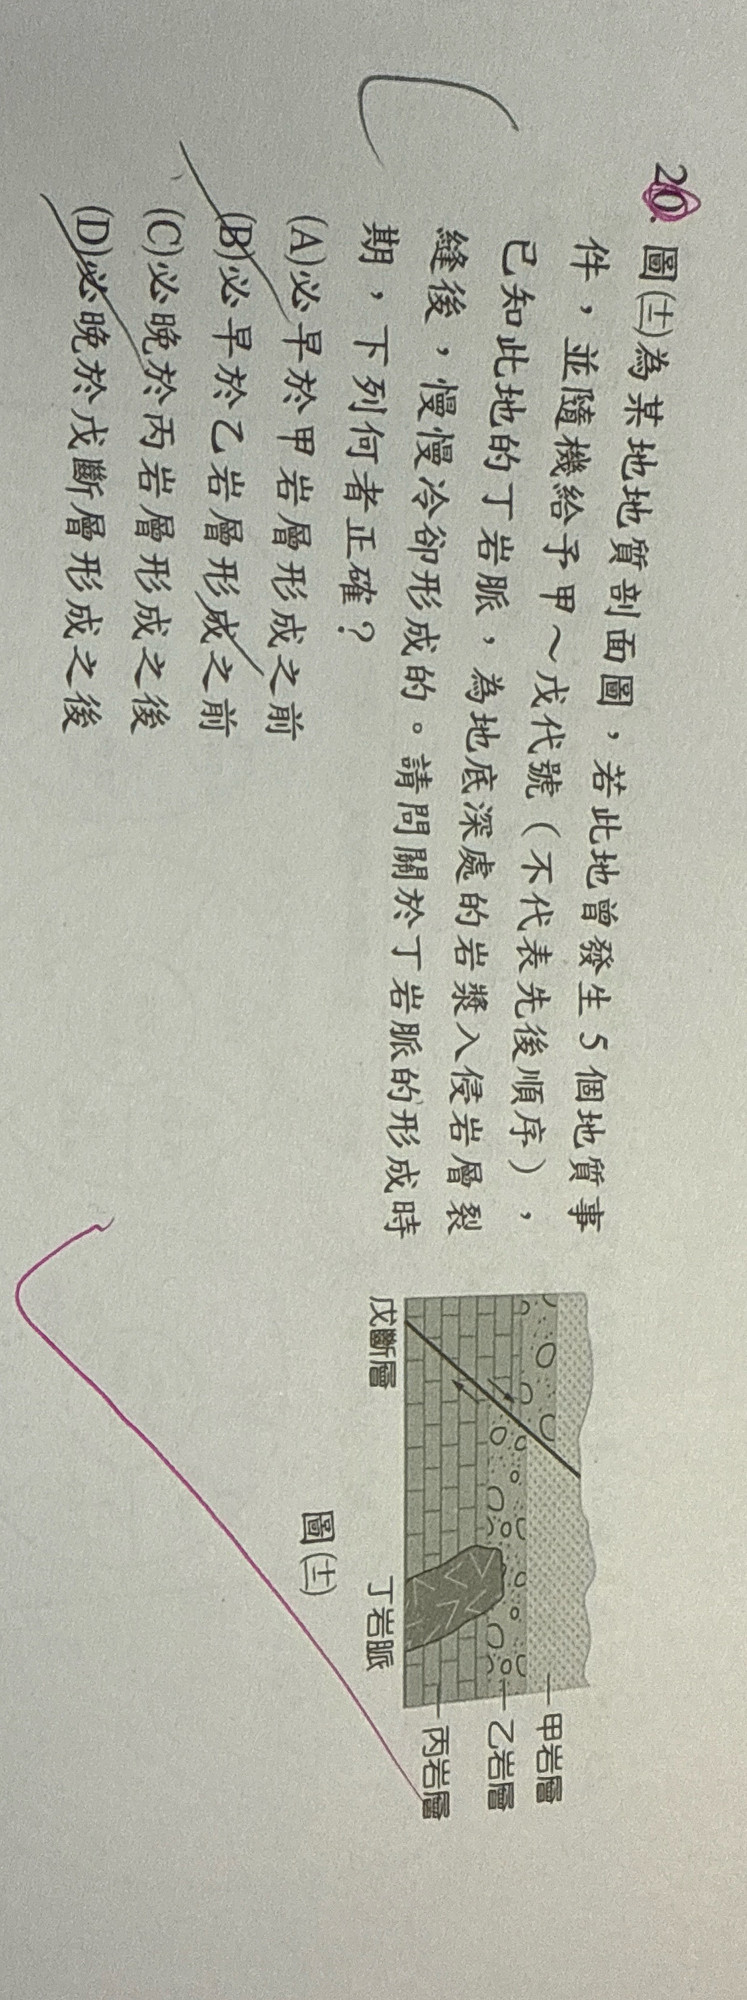 20. 圖(十一)為某地地質剖面圖，若此地曾發生5個地質事
件，並隨機給予甲～戊代號（不代表先後順序），
已知此地的丁岩脈，為地底深處的岩漿入侵岩層裂
縫後，慢慢冷卻形成的。請問關於丁岩脈的形成時
期，下列何者正確？
(A)必早於甲岩層形成之前
(B)必早於乙岩層形成之前
(C)必晚於丙岩層形成之後
(D)必晚於戊斷層形成之後
甲岩層
乙岩層
丙岩層
戊斷層
丁岩脈
圖(十一)